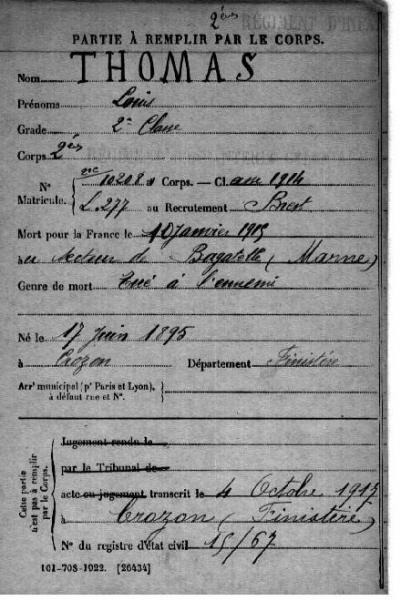 2es RÉGIMENT D'INF
PARTIE À REMPLIR PAR LE CORPS.
Nom THOMAS
Prénoms Louis
Grade 2e Classe
Corps 2es
N° Matricule. { 10208 au Corps. — Cl asse 1914
L. 277 au Recrutement Brest
Mort pour la France le 10 Janvier 1915
à au secteur de Bagatelle (Marne)
Genre de mort Tué à l'ennemi
Né le 17 Juin 1895
à Crozon Département Finistère
Arrt municipal (pr Paris et Lyon), à défaut rue et N°.
Cette partie n'est pas à remplir par le Corps.
Jugement rendu le
par le Tribunal de
acte ou jugement transcrit le 4 Octobre 1917
à Crozon (Finistère)
N° du registre d'état civil 15/67
101-708-1922. [26434]